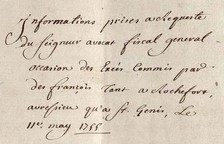 Informations prises a Requeste
du Seigneur avocat fiscal general
occasion des Excés Commis par
des françois Tant a Rochefort
qu'a St. Genis, Le
11e. may 1755